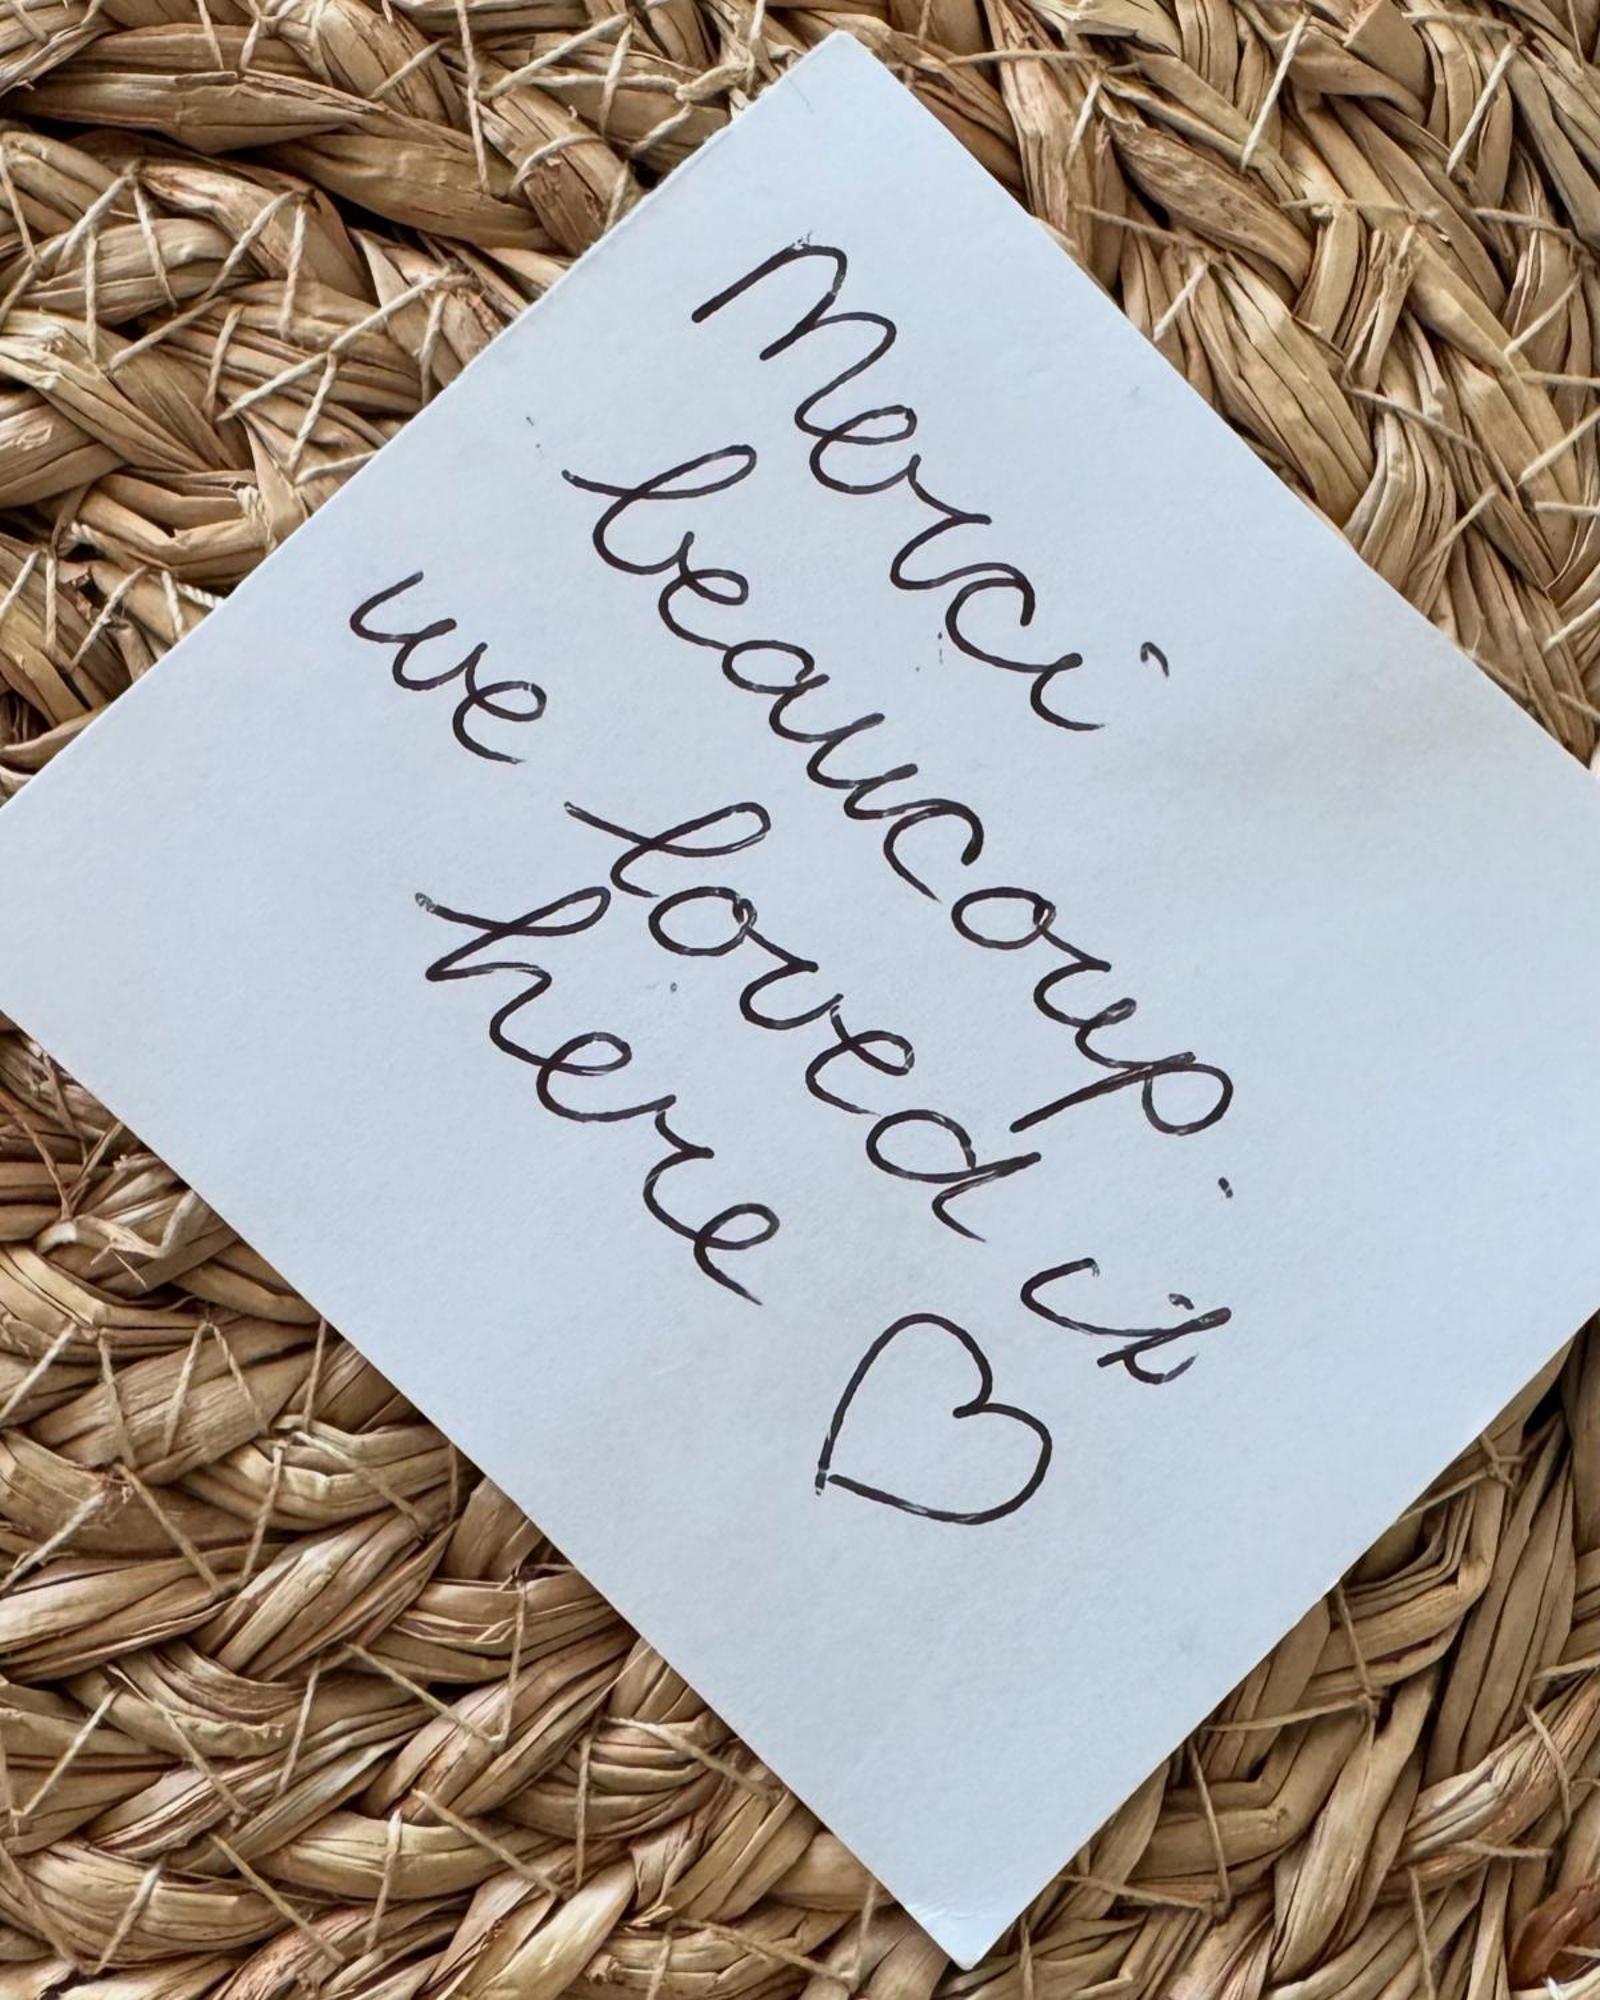 Merci
beaucoup
we loved it
here ♡